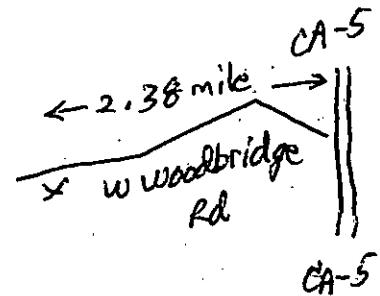 CA-5
2.38 mile
x W Woodbridge
Rd
CA-5